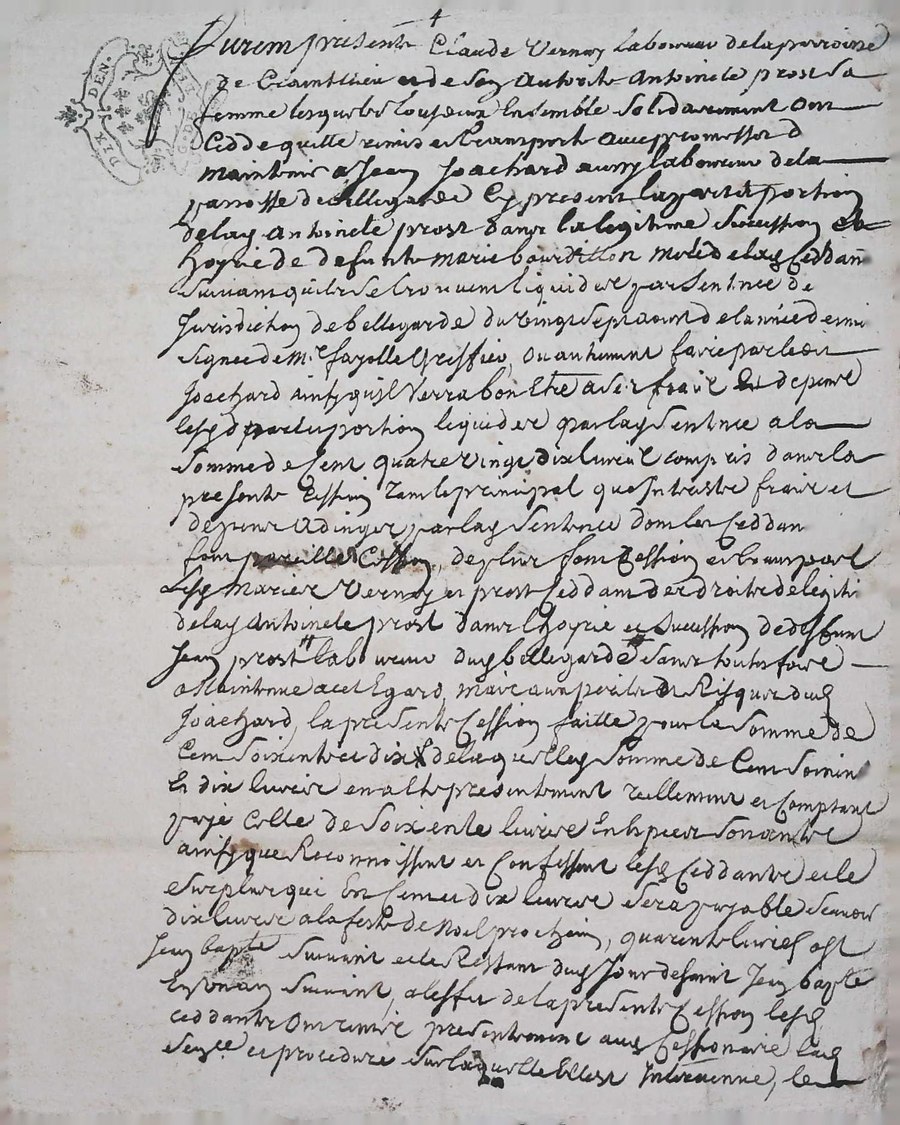 DIX DEN.
Furent presents Claude Vernay laboureur de la parroisse
de Craintilleu et de son autorite Antoinete prost sa
femme lesquels tous deux Ensemble solidairement ont
Cedde quitte remis et transporte avec promesse de
maintenir a Jean Joachard aussy laboureur de la
parroisse de bellegarde Cy present la part et portion
de lad antoinete prost dans la legitime succession et
hoyrie de defunte marie bourdillon mere de lad Ceddante
suivant qu'ils se trouvent liquidés par sentence de
Jurisdiction de bellegarde du vingt sept aoust de l'année derniere
signée de Mr fayolle Greffier, ou autrement faire par ledit
Joachard ainsy quil Verra bon Etre a ses frais Et depens
lesd part et portion liquidés par lad sentence a la
somme de Cent quatre vingt dix livres compris dans la
presente Cession tant le principal que Interests frais et
depens adjugés par lad sentence dont les Ceddants
font pareille Cession, de plus font Cession et transport
Lesd mariés Vernay et prost Ceddants des droits de legitime
de lad antoinete prost dans l'hoyrie et succession de deffunt
Jean prost laboureur dud bellegarde sans toutes fois
a Maintenue a cet Egard, mais aux perils et Risques dud
Joachard, la presente Cession faitte pour la somme de
Cent soixente et dix de laquelle somme de Cent soixente
Et dix livres en a êté presentement réellement et Comptant
payé Celle de soixente livres En Espèces sonantes
ainsy que Reconnoissent et Confessent lesd Ceddants et le
surplus qui Est Cent et dix livres sera payable scavoir
dix livres a la feste de Noel prochain, quarente livres a st
Jean bapte suivant et le Restant dud Jour de saint Jean bapte
En un an suivant, a l'effet de la presente Cession lesd
ceddants ont remis presentement aud Cessionaire lad
sence et procedure sur laquelle Elle est Intervenue, le